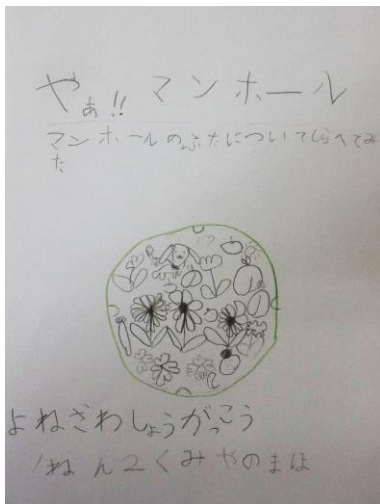 やぁ!! マンホール
マンホールのふたについてしらべてみ
た
よねざわしょうがっこう
1ねん2くみやのまほ